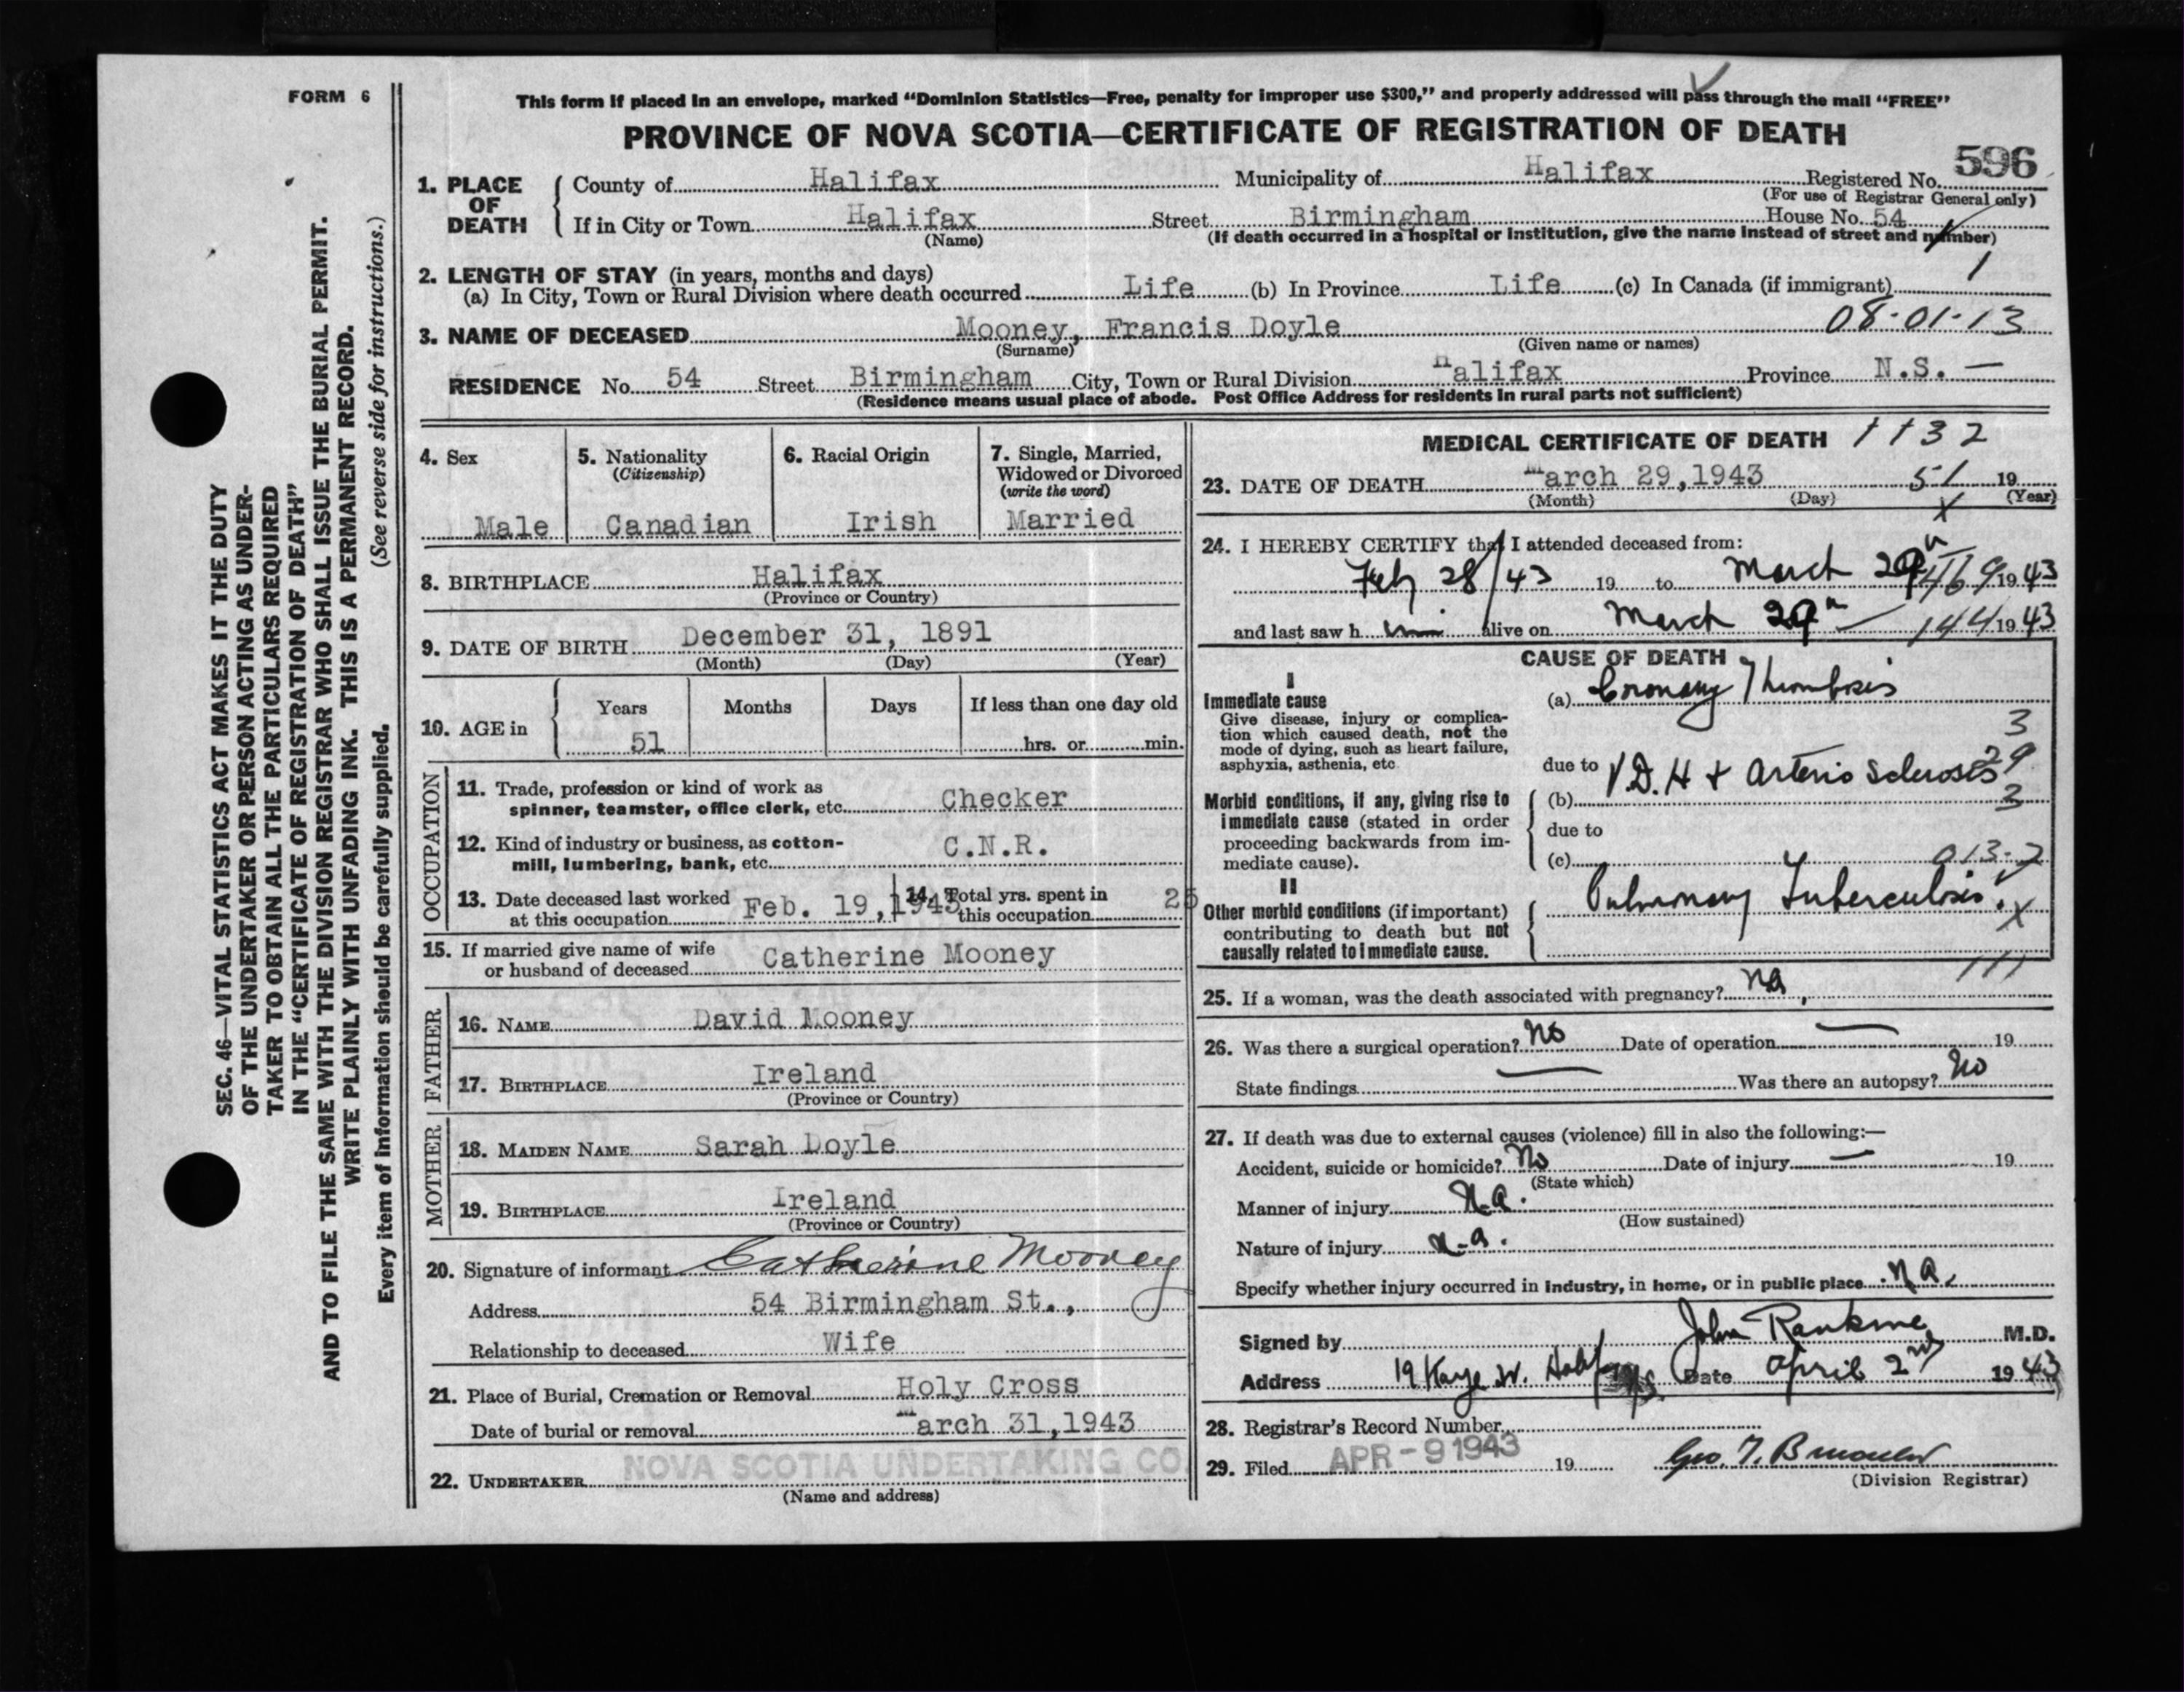 FORM 6
This form if placed in an envelope, marked "Dominion Statistics—Free, penalty for improper use $300," and properly addressed will pass through the mail "FREE"
PROVINCE OF NOVA SCOTIA—CERTIFICATE OF REGISTRATION OF DEATH
596
1. PLACE OF DEATH
County of Halifax Municipality of Halifax Registered No.
(For use of Registrar General only)
If in City or Town Halifax Street Birmingham House No. 54
(Name) (If death occurred in a hospital or institution, give the name instead of street and number)
1
2. LENGTH OF STAY (in years, months and days)
(a) In City, Town or Rural Division where death occurred Life (b) In Province Life (c) In Canada (if immigrant)
3. NAME OF DECEASED Mooney, Francis Doyle 08-01-13
(Surname) (Given name or names)
RESIDENCE No. 54 Street Birmingham City, Town or Rural Division Halifax Province N.S. —
(Residence means usual place of abode. Post Office Address for residents in rural parts not sufficient)
4. Sex
Male
5. Nationality
(Citizenship)
Canadian
6. Racial Origin
Irish
7. Single, Married,
Widowed or Divorced
(write the word)
Married
8. BIRTHPLACE Halifax
(Province or Country)
9. DATE OF BIRTH December 31, 1891
(Month) (Day) (Year)
10. AGE in
Years Months Days If less than one day old
51 hrs. or min.
OCCUPATION
11. Trade, profession or kind of work as
spinner, teamster, office clerk, etc. Checker
12. Kind of industry or business, as cotton-
mill, lumbering, bank, etc. C.N.R.
13. Date deceased last worked
at this occupation Feb. 19, 1943
14. Total yrs. spent in
this occupation 25
15. If married give name of wife
or husband of deceased Catherine Mooney
FATHER
16. NAME David Mooney
17. BIRTHPLACE Ireland
(Province or Country)
MOTHER
18. MAIDEN NAME Sarah Doyle
19. BIRTHPLACE Ireland
(Province or Country)
20. Signature of informant Catherine Mooney
Address 54 Birmingham St.,
Relationship to deceased Wife
21. Place of Burial, Cremation or Removal Holy Cross
Date of burial or removal March 31, 1943
22. UNDERTAKER NOVA SCOTIA UNDERTAKING CO.
(Name and address)
MEDICAL CERTIFICATE OF DEATH 1132
23. DATE OF DEATH March 29, 1943 51 19
(Month) (Day) (Year)
X
24. I HEREBY CERTIFY that I attended deceased from:
Feb 28/43 19 to March 29th 1943
and last saw h im alive on March 29th 144 1943
CAUSE OF DEATH
I
Immediate cause
Give disease, injury or complica-
tion which caused death, not the
mode of dying, such as heart failure,
asphyxia, asthenia, etc.
(a) Coronary Thrombosis
3
29
due to V.D.H + Arterio Sclerosis
Morbid conditions, if any, giving rise to
immediate cause (stated in order
proceeding backwards from im-
mediate cause).
(b) 3
due to
(c) 013-7
II
Other morbid conditions (if important)
contributing to death but not
causally related to immediate cause.
Pulmonary Tuberculosis.
X
111
25. If a woman, was the death associated with pregnancy? na
26. Was there a surgical operation? No Date of operation — 19
State findings — Was there an autopsy? No
27. If death was due to external causes (violence) fill in also the following:—
Accident, suicide or homicide? No Date of injury — 19
(State which)
Manner of injury n.a.
(How sustained)
Nature of injury n.a.
Specify whether injury occurred in industry, in home, or in public place n a.
Signed by John Rankine M.D.
Address 19 Kaye St. Halifax N.S. Date April 2nd 1943
28. Registrar's Record Number
29. Filed APR - 9 1943 19
(Division Registrar)
SEC. 46—VITAL STATISTICS ACT MAKES IT THE DUTY
OF THE UNDERTAKER OR PERSON ACTING AS UNDER-
TAKER TO OBTAIN ALL THE PARTICULARS REQUIRED
IN THE "CERTIFICATE OF REGISTRATION OF DEATH"
AND TO FILE THE SAME WITH THE DIVISION REGISTRAR WHO SHALL ISSUE THE BURIAL PERMIT.
WRITE PLAINLY WITH UNFADING INK. THIS IS A PERMANENT RECORD.
(See reverse side for instructions.)
Every item of information should be carefully supplied.